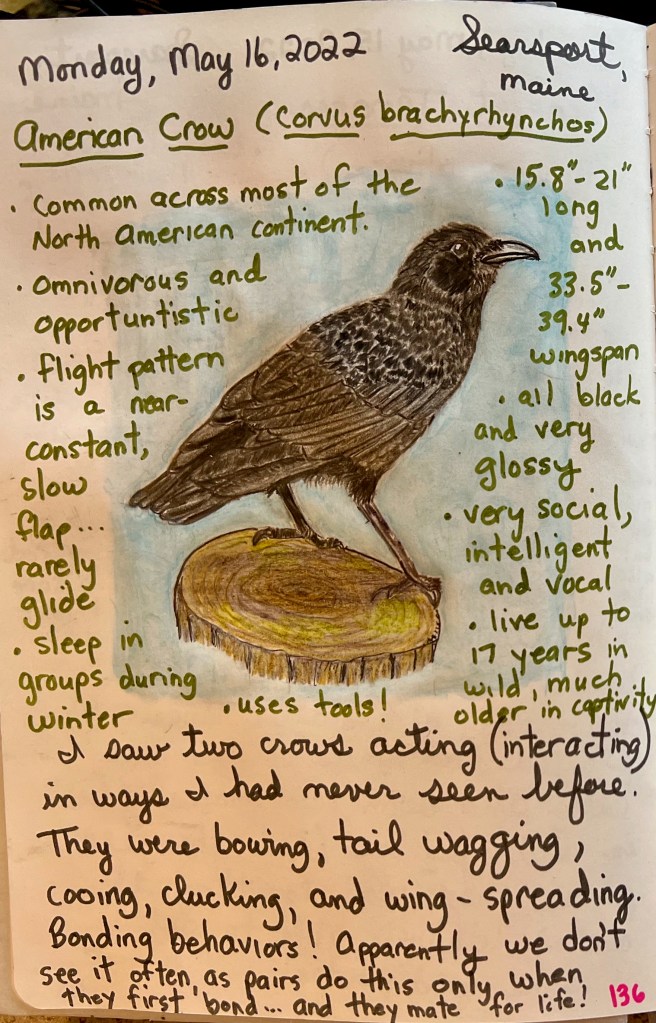 Monday, May 16, 2022
Searsport,
maine
American Crow (Corvus brachyrhynchos)
• Common across most of the
North American continent.
• omnivorous and
opportuntistic
• flight pattern
is a near-
constant,
slow
flap...
rarely
glide
• sleep in
groups during
winter
• uses tools!
• 15.8"- 21"
long
and
33.5"-
39.4"
wingspan
• all black
and very
glossy
• very social,
intelligent
and vocal
• live up to
17 years in
wild, much
older in captivity
I saw two crows acting (interacting)
in ways I had never seen before.
They were bowing, tail wagging,
cooing, clucking, and wing-spreading.
Bonding behaviors! Apparently we don't
see it often, as pairs do this only when
they first bond... and they mate for life!
136